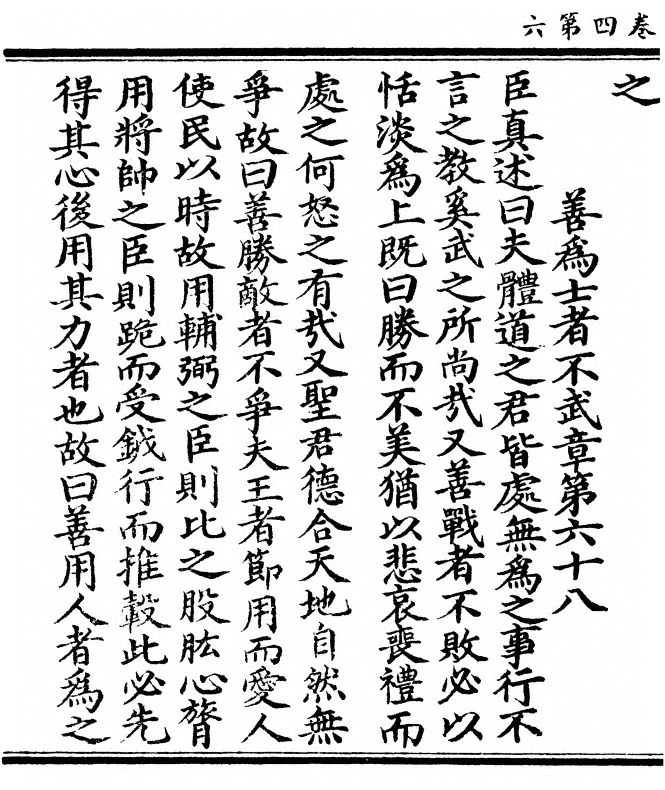 卷四第六
之
善爲士者不武章第六十八
臣真述曰夫體道之君皆處無爲之事行不
言之教奚武之所尚哉又善戰者不敗必以
恬淡爲上既曰勝而不美猶以悲哀喪禮而
處之何怒之有哉又聖君德合天地自然無
爭故曰善勝敵者不爭夫王者節用而愛人
使民以時故用輔弼之臣則比之股肱心膂
用將帥之臣則跪而受鉞行而推轂此必先
得其心後用其力者也故曰善用人者爲之